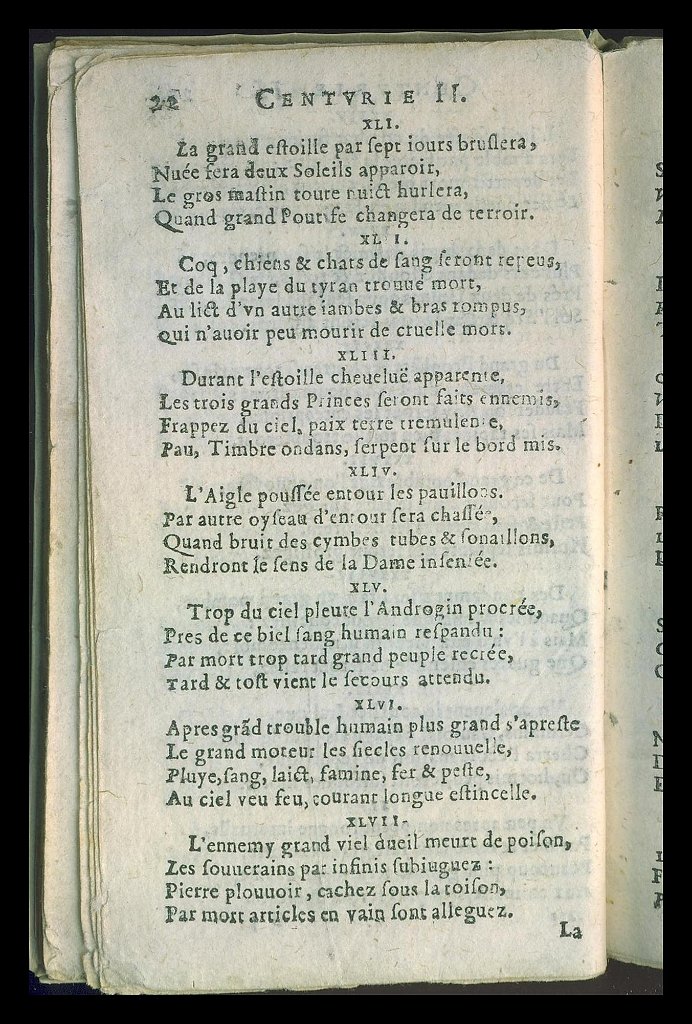 22 CENTVRIE II.
XLI.
La grand eſtoille par ſept iours bruſlera,
Nuée ſera deux Soleils apparoir,
Le gros maſtin toute nuict hurlera,
Quand grand Pontife changera de terroir.
XLII.
Coq, chiens & chats de ſang ſeront repeus,
Et de la playe du tyran trouué mort,
Au lict d'vn autre iambes & bras rompus,
Qui n'auoir peu mourir de cruelle mort.
XLIII.
Durant l'eſtoille cheueluë apparente,
Les trois grands Princes ſeront faits ennemis,
Frappez du ciel, paix terre tremulente,
Pau, Timbre ondans, ſerpent ſur le bord mis.
XLIV.
L'Aigle pouſſée entour les pauillons.
Par autre oyſeau d'entour ſera chaſſée,
Quand bruit des cymbes tubes & ſonaillons,
Rendront le ſens de la Dame inſenſée.
XLV.
Trop du ciel pleure l'Androgin procrée,
Pres de ce biel ſang humain reſpandu :
Par mort trop tard grand peuple recrée,
Tard & toſt vient le ſecours attendu.
XLVI.
Apres grãd trouble humain plus grand s'apreſte
Le grand moteur les ſiecles renouuelle,
Pluye, ſang, laict, famine, fer & peſte,
Au ciel veu feu, courant longue eſtincelle.
XLVII.
L'ennemy grand viel dueil meurt de poiſon,
Les ſouuerains par infinis ſubiuguez :
Pierre plouuoir, cachez ſous la toiſon,
Par mort articles en vain ſont alleguez.
La